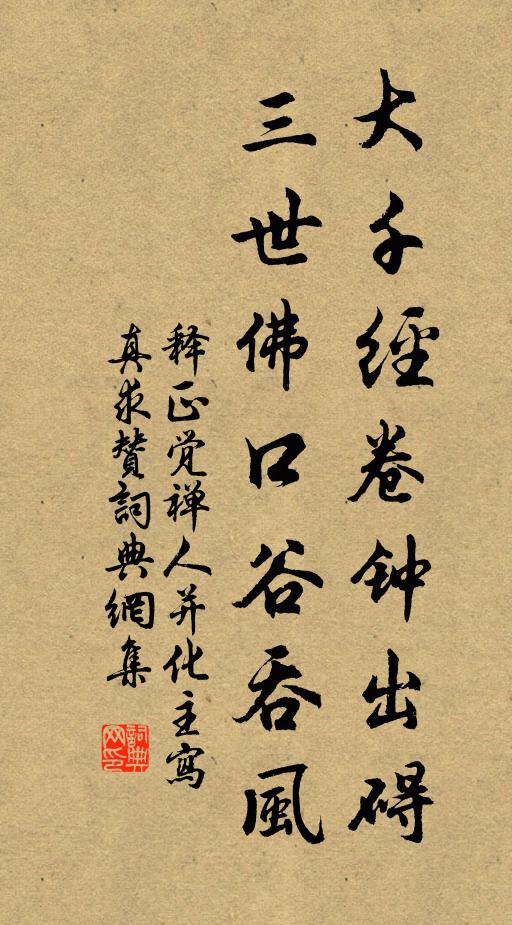 大千經卷钟出碍
三世佛口谷吞風
释正觉禅人并化主寫
真求贊詞典網集
詞典
网印